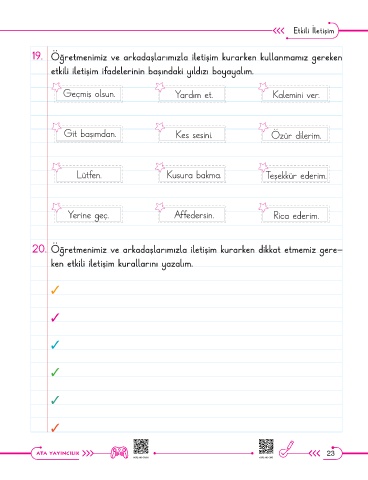 Etkili İletişim
19. Öğretmenimiz ve arkadaşlarımızla iletişim kurarken kullanmamız gereken
etkili iletişim ifadelerinin başındaki yıldızı boyayalım.
Geçmiş olsun. Yardım et. Kalemini ver.
Git başımdan. Kes sesini. Özür dilerim.
Lütfen. Kusura bakma. Teşekkür ederim.
Yerine geç. Affedersin. Rica ederim.
20. Öğretmenimiz ve arkadaşlarımızla iletişim kurarken dikkat etmemiz gere-
ken etkili iletişim kurallarını yazalım.
ATA YAYINCILIK 23